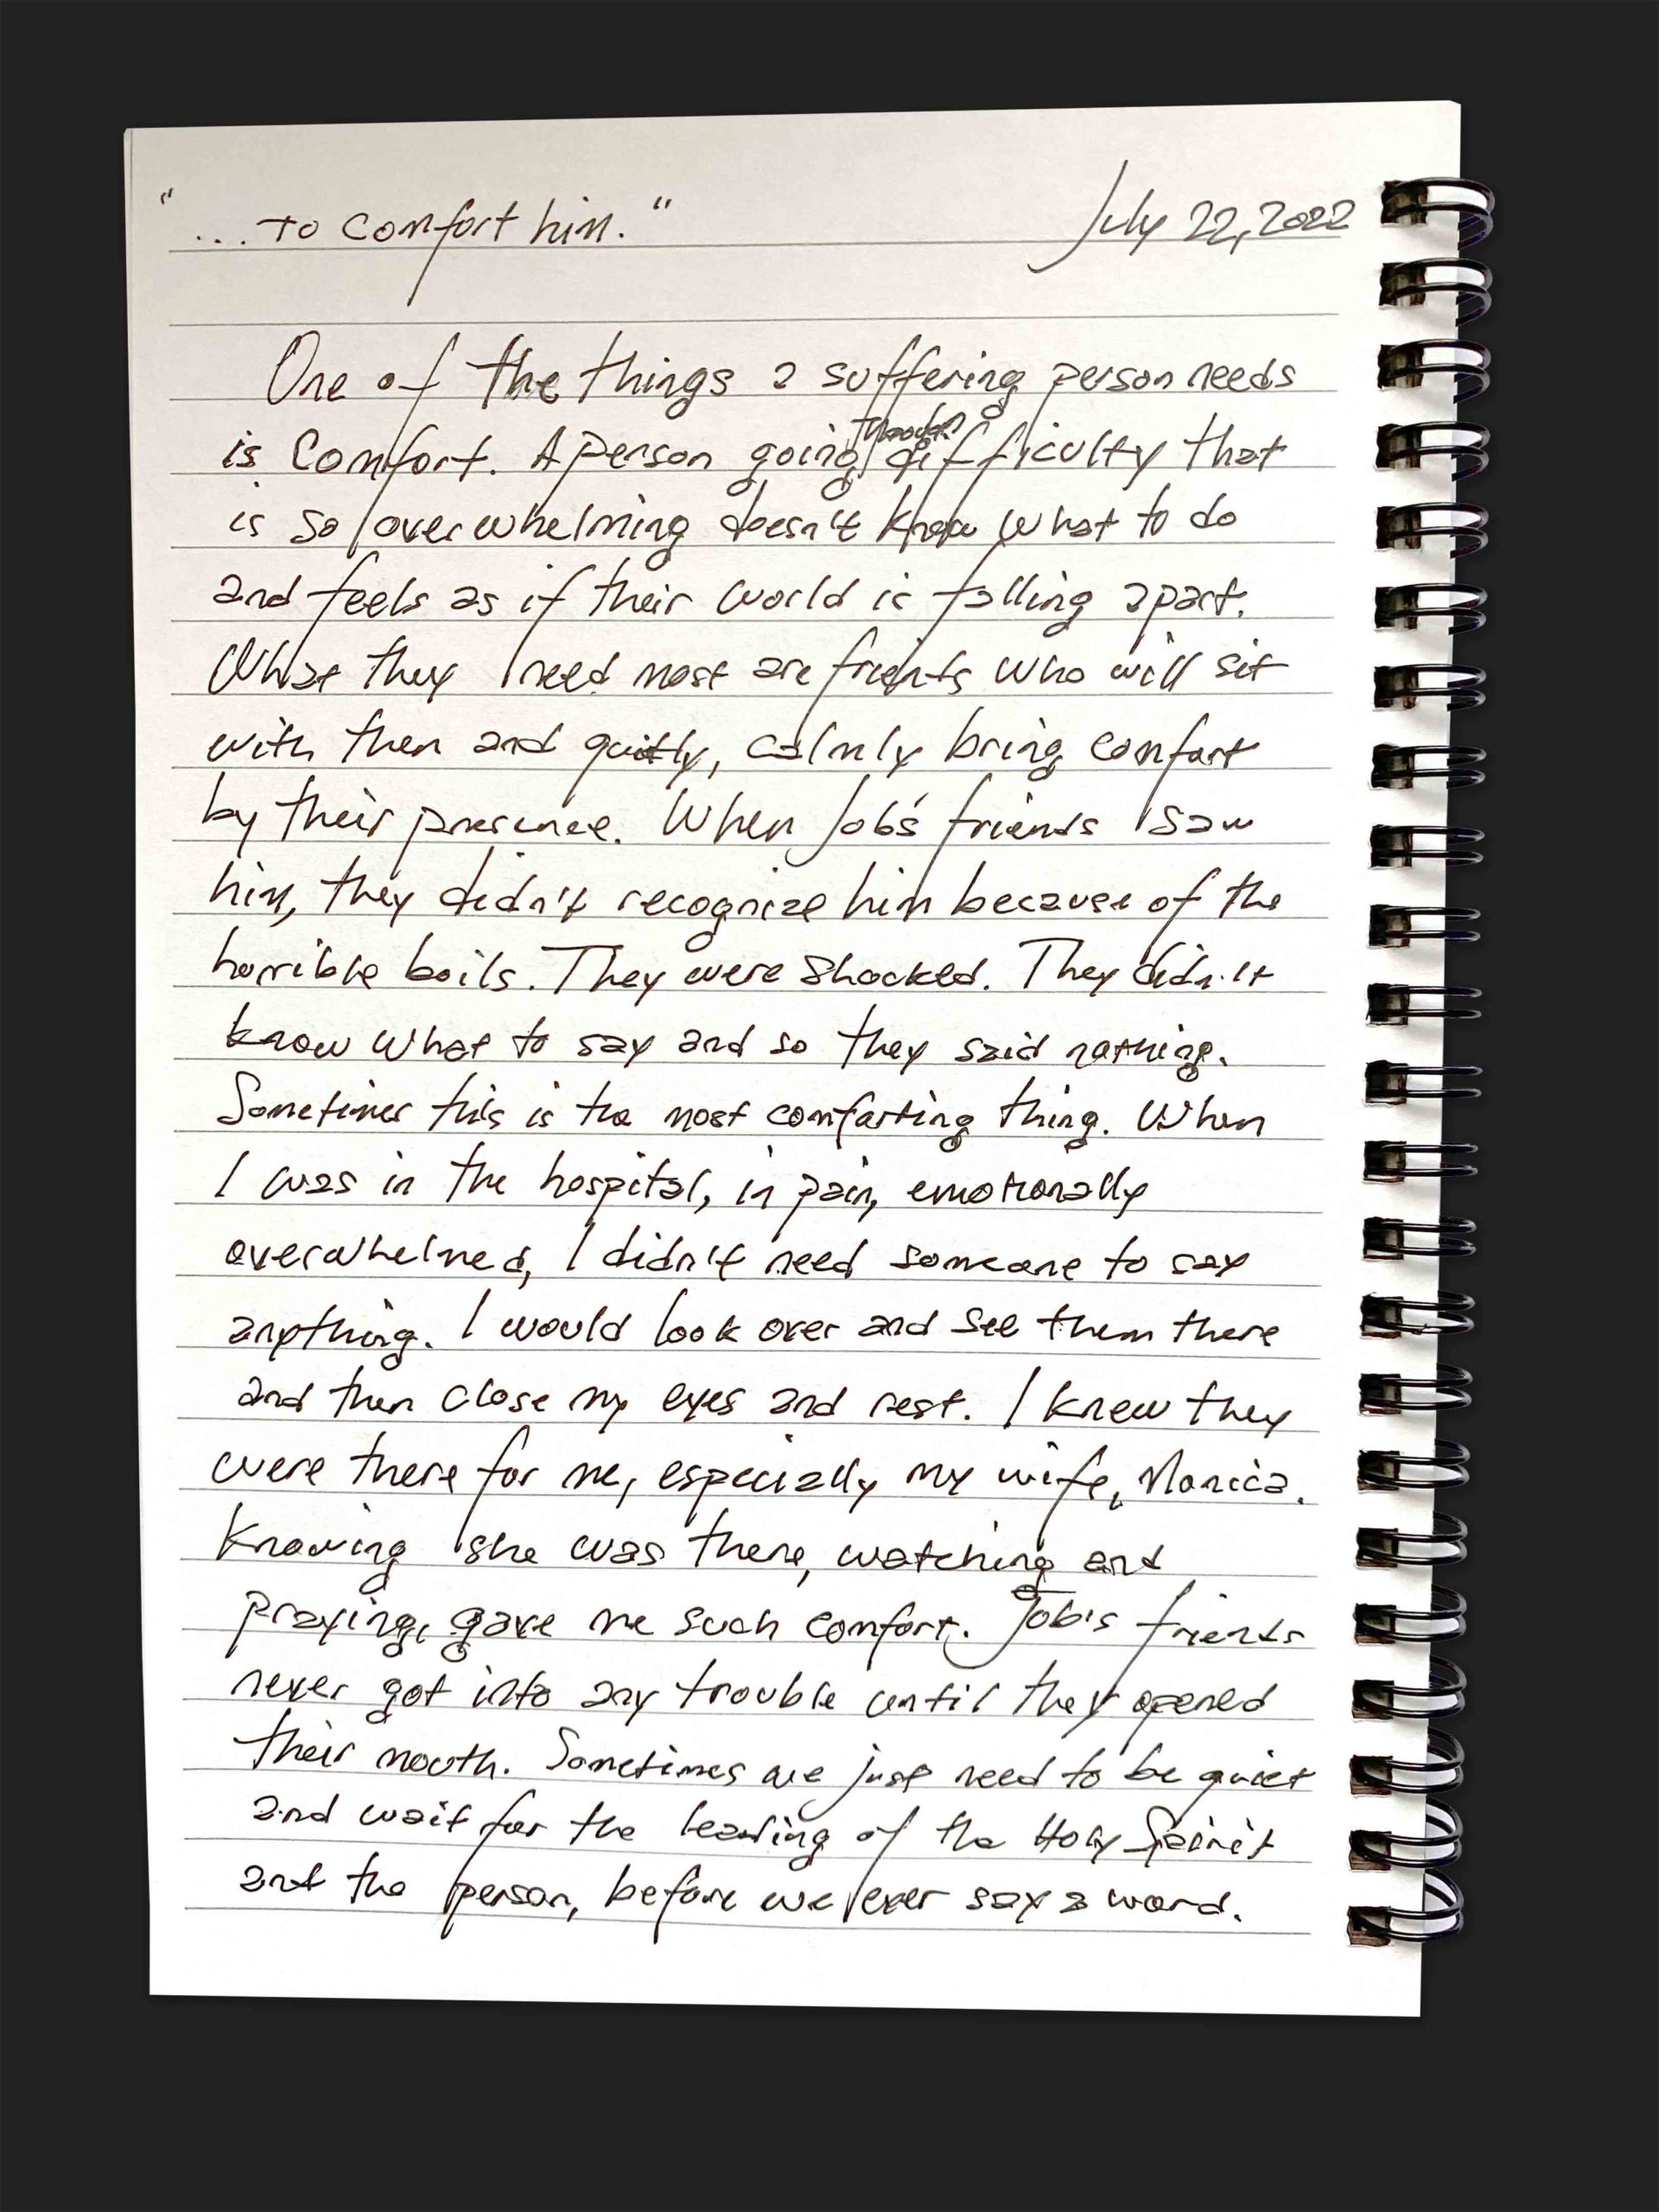 "... To comfort him." July 22, 2022
One of the things a suffering person needs
is Comfort. A person going through difficulty that
is so overwhelming doesn't know what to do
and feels as if their world is falling apart.
What they need most are friends who will sit
with them and quitly, calmly bring comfort
by their presence. When Job's friends saw
him, they didn't recognize him because of the
horrible boils. They were shocked. They didn't
know what to say and so they said nothing.
Sometimes this is the most comforting thing. When
I was in the hospital, in pain, emotionally
overwhelmed, I didn't need someone to say
anything. I would look over and see them there
and then close my eyes and rest. I knew they
were there for me, especially my wife, Monica.
Knowing she was there, watching and
praying, gave me such comfort. Job's friends
never got into any trouble until they opened
their mouth. Sometimes we just need to be quiet
and wait for the leading of the Holy Spirit
and the person, before we ever say a word.